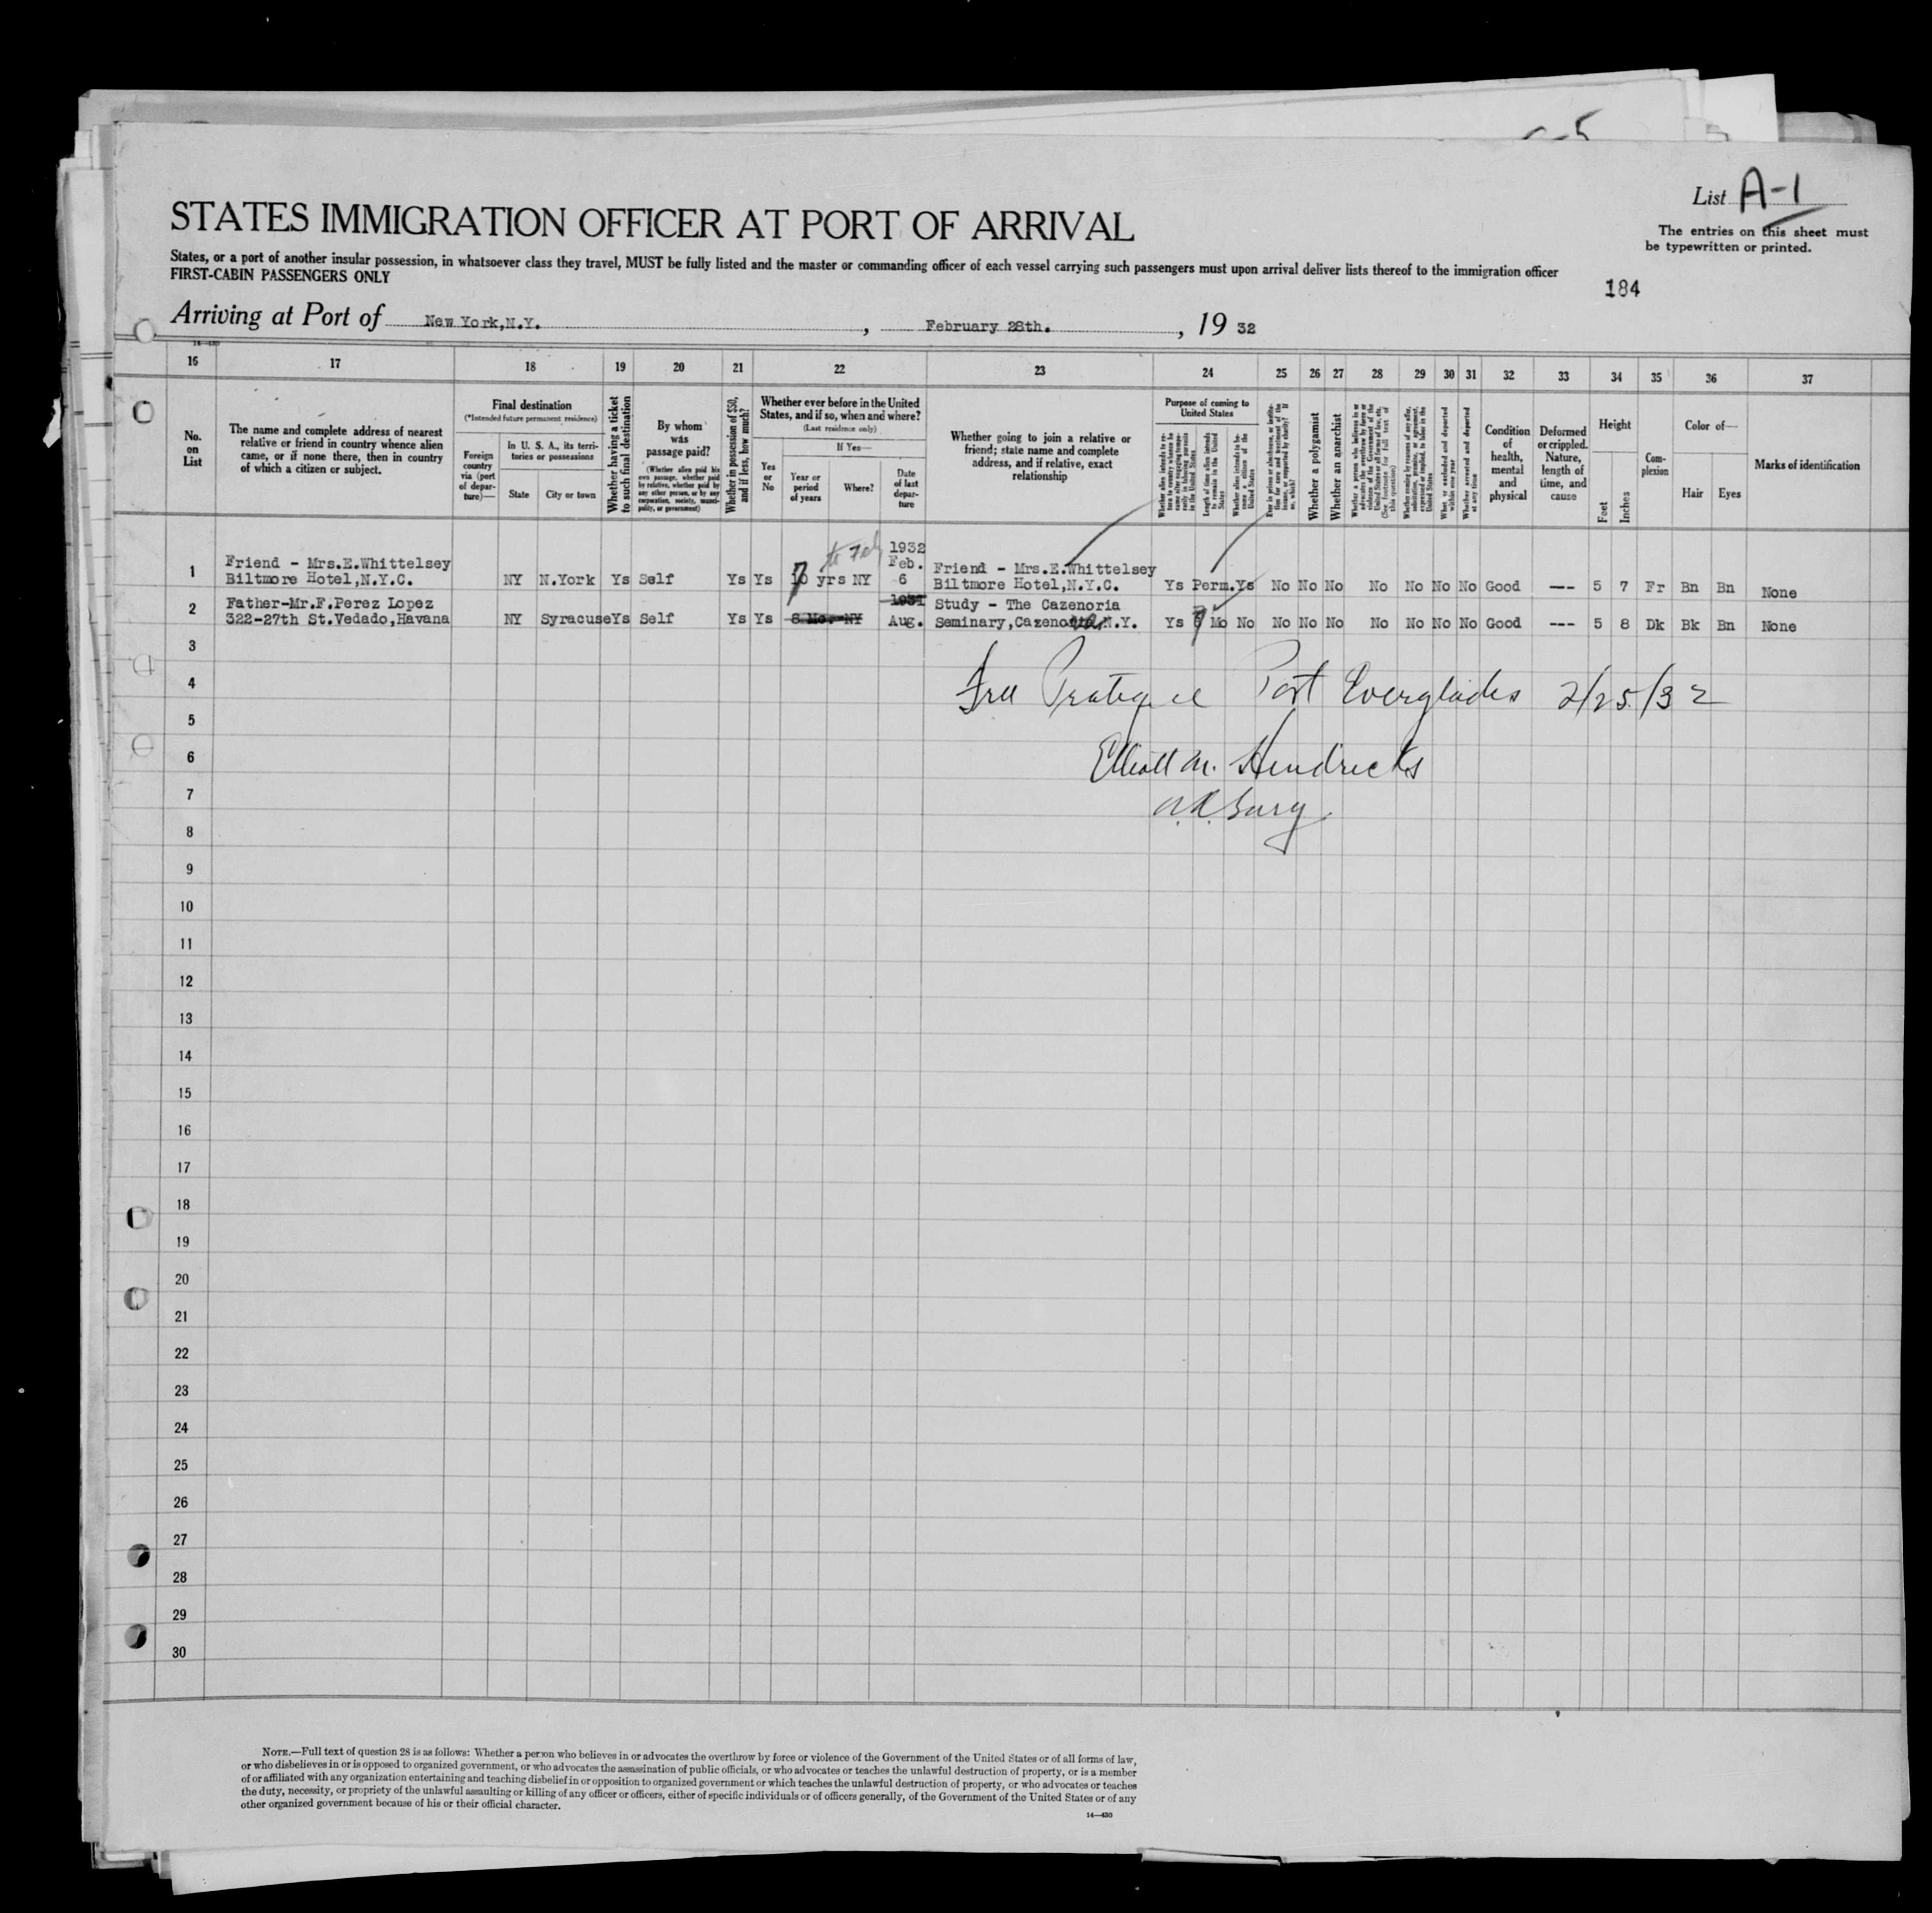 List A-1
The entries on this sheet must
be typewritten or printed.
STATES IMMIGRATION OFFICER AT PORT OF ARRIVAL
States, or a port of another insular possession, in whatsoever class they travel, MUST be fully listed and the master or commanding officer of each vessel carrying such passengers must upon arrival deliver lists thereof to the immigration officer
FIRST-CABIN PASSENGERS ONLY
184
Arriving at Port of New York,N.Y. , February 28th. , 19 32
16 17 18 19 20 21 22 23 24 25 26 27 28 29 30 31 32 33 34 35 36 37
No.
on
List
The name and complete address of nearest
relative or friend in country whence alien
came, or if none there, then in country
of which a citizen or subject.
Final destination
(*Intended future permanent residence)
Foreign
country
via (port
of depar-
ture)—
In U. S. A., its terri-
tories or possessions
State
City or town
Whether having a ticket
to such final destination
By whom
was
passage paid?
(Whether alien paid his
own passage, whether paid
by relative, whether paid by
any other person, or by any
corporation, society, munici-
pality, or government)
Whether in possession of $50,
and if less, how much?
Whether ever before in the United
States, and if so, when and where?
(Last residence only)
Yes
or
No
If Yes—
Year or
period
of years
Where?
Date
of last
depar-
ture
Whether going to join a relative or
friend; state name and complete
address, and if relative, exact
relationship
Purpose of coming to
United States
Length of time alien intends
to remain in the United
States
Whether alien intends to be-
come a citizen of the
United States
Whether a polygamist
Whether an anarchist
Whether arrested and deported
at any time
Condition
of
health,
mental
and
physical
Deformed
or crippled.
Nature,
length of
time, and
cause
Height
Feet
Inches
Com-
plexion
Color of—
Hair
Eyes
Marks of identification
1 Friend - Mrs.E.Whittelsey
Biltmore Hotel,N.Y.C. NY N.York Ys Self Ys Ys 10 yrs NY 1932 Feb. 6 Friend - Mrs.E.Whittelsey
Biltmore Hotel,N.Y.C. Ys Perm. Ys No No No No No No No Good --- 5 7 Fr Bn Bn None
2 Father-Mr.F.Perez Lopez
322-27th St.Vedado,Havana NY Syracuse Ys Self Ys Ys 8 Mo. NY 1931 Aug. Study - The Cazenoria
Seminary,Cazenovia,N.Y. Ys Mo No No No No No No No No Good --- 5 8 Dk Bk Bn None
3
4 Free Pratique Port Everglades 2/25/32
5
6 Elliott M. Hendricks
7 A.A. Surg.
8
9
10
11
12
13
14
15
16
17
18
19
20
21
22
23
24
25
26
27
28
29
30
NOTE.—Full text of question 28 is as follows: Whether a person who believes in or advocates the overthrow by force or violence of the Government of the United States or of all forms of law,
or who disbelieves in or is opposed to organized government, or who advocates the assassination of public officials, or who advocates or teaches the unlawful destruction of property, or is a member
of or affiliated with any organization entertaining and teaching disbelief in or opposition to organized government or which teaches the unlawful destruction of property, or who advocates or teaches
the duty, necessity, or propriety of the unlawful assaulting or killing of any officer or officers, either of specific individuals or of officers generally, of the Government of the United States or of any
other organized government because of his or their official character.
14—430